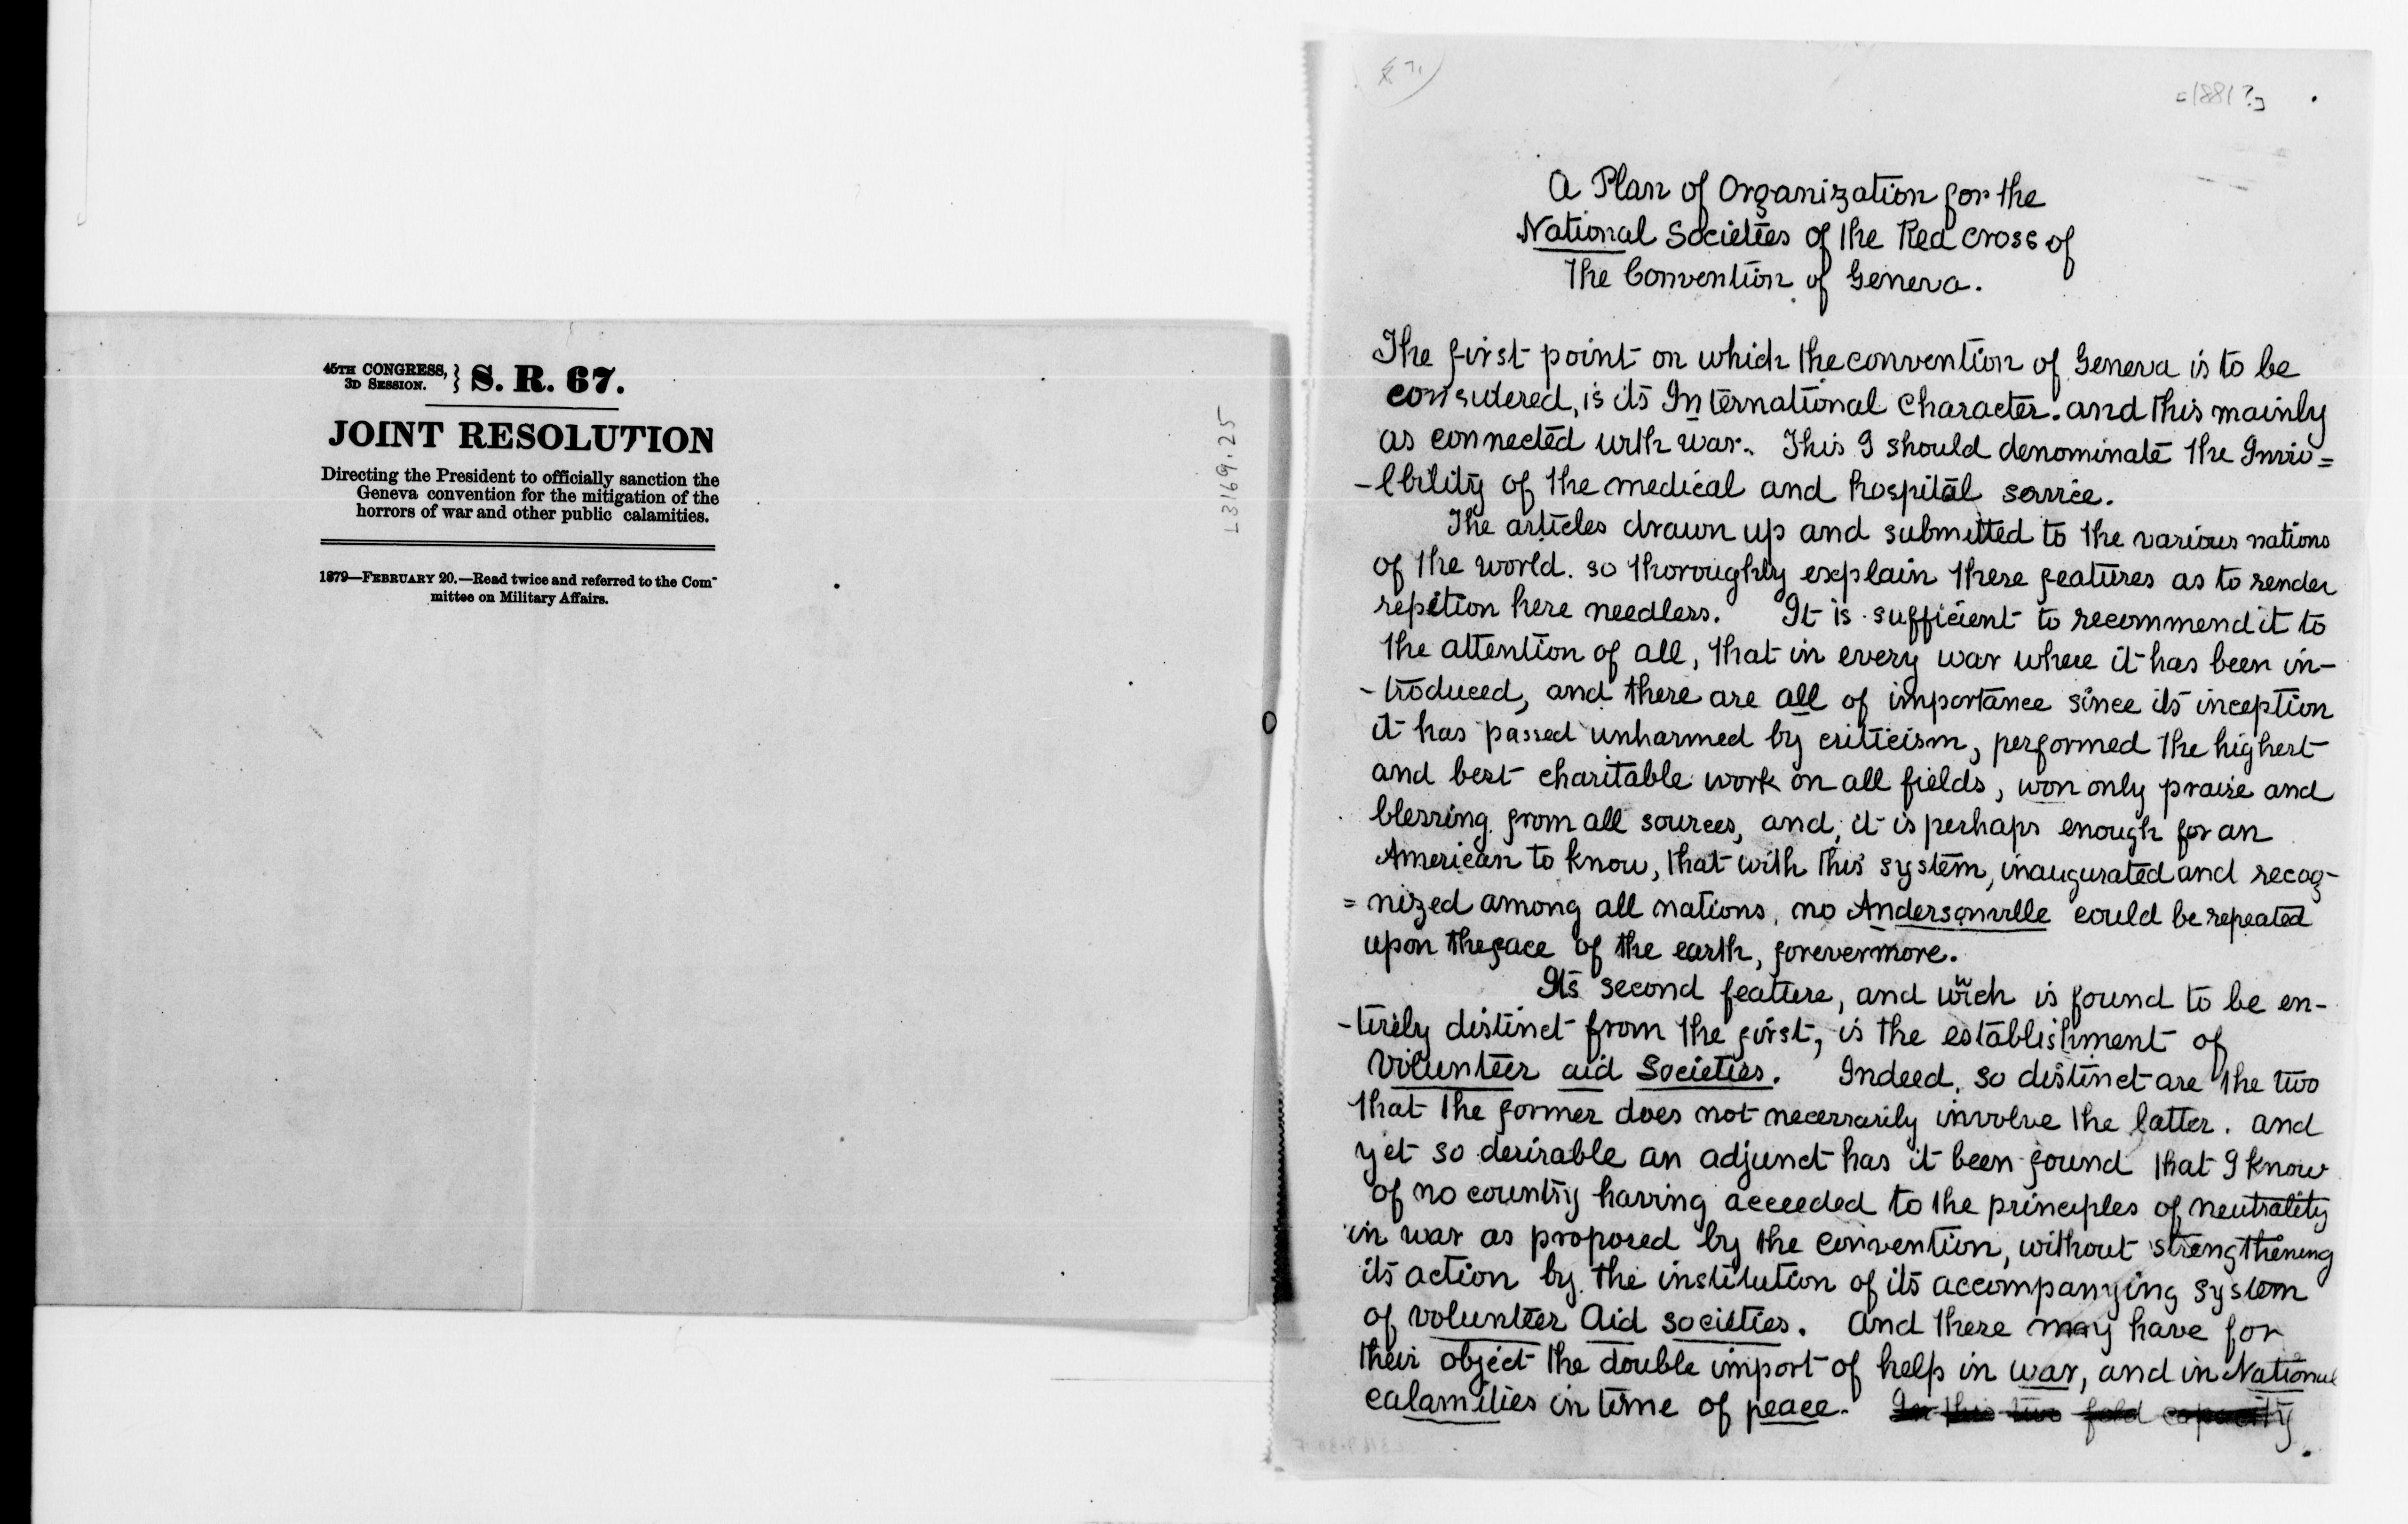 45TH CONGRESS,
3D SESSION. } S. R. 67.
JOINT RESOLUTION
Directing the President to officially sanction the
Geneva convention for the mitigation of the
horrors of war and other public calamities.
1879—FEBRUARY 20.—Read twice and referred to the Com-
mittee on Military Affairs.
L3169.25
[1881?]
A Plan of Organization for the
National Societies of the Red Cross of
The Convention of Geneva.
The first point on which the convention of Geneva is to be
considered, is its International Character. and this mainly
as connected with war. This I should denominate the Invio=
-lbility of the medical and hospital service.
The articles drawn up and submitted to the various nations
of the world. so thoroughly explain these features as to render
repition here needless. It is sufficient to recommend it to
the attention of all, that in every war where it has been in-
-troduced, and there are all of importance since its inception
it has passed unharmed by criticism, performed the highest
and best charitable work on all fields, won only praise and
blessing from all sources, and, it is perhaps enough for an
American to know, that with this system, inaugurated and recog-
=nized among all nations, no Andersonville could be repeated
upon the face of the earth, forevermore.
Its second feature, and which is found to be en-
-tirely distinct from the first, is the establishment of
Volunteer aid Societies. Indeed, so distinct are the two
that the former does not necessarily involve the latter. and
yet so desirable an adjunct has it been found that I know
of no country having acceeded to the principles of neutrality
in war as proposed by the convention, without strengthening
its action by the institution of its accompanying system
of volunteer Aid societies. And these may have for
their object the double import of help in war, and in National
calamities in time of peace. In this two fold capacity